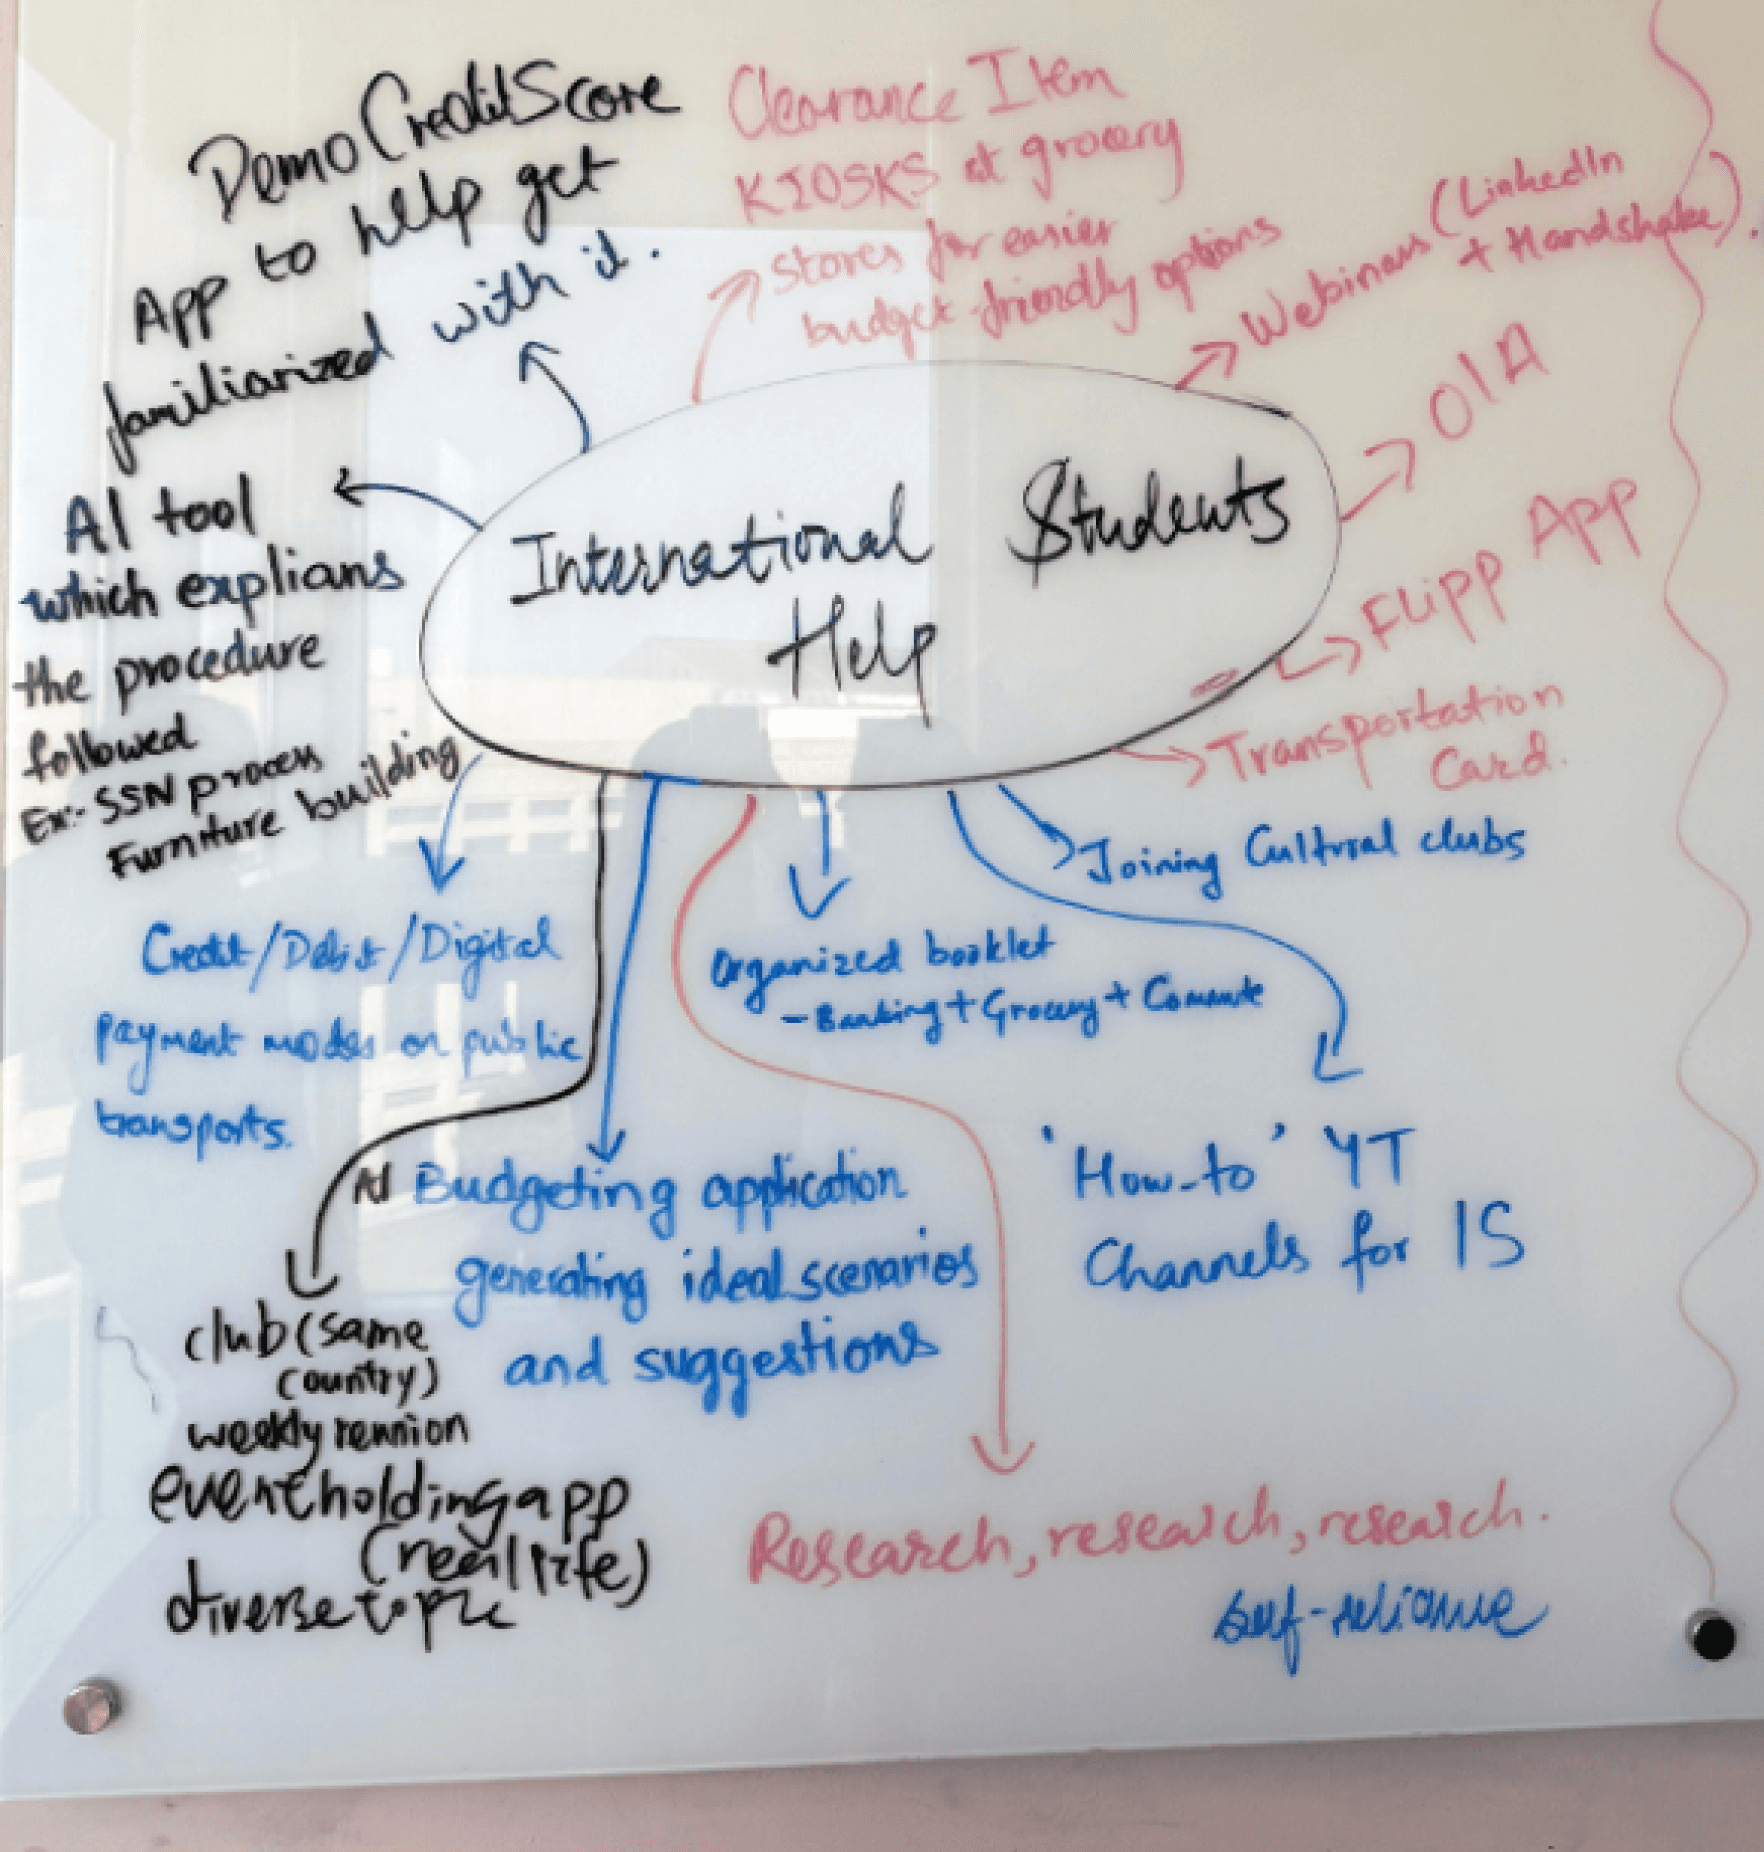 Demo Credit Score
App to help get
familiarized with it.
Clearance Item
KIOSKS at grocery
stores for easier
budget-friendly options
Webinars (LinkedIn
+ Handshake).
OIA
Flipp App
Transportation
Card.
International Students
Help
AI tool
which explians
the procedure
followed
Ex:- SSN process
Furniture building
Joining Cultural clubs
Credit/Debit/Digital
payment modes on public
transports.
Organized booklet
- Banking + Grocery + Commute
AI Budgeting application
generating ideal scenarios
and suggestions
'How-to' YT
Channels for IS
club (same
country)
weekly reunion
event holding app
(real life)
diverse topic
Research, research, research.
self-reliance